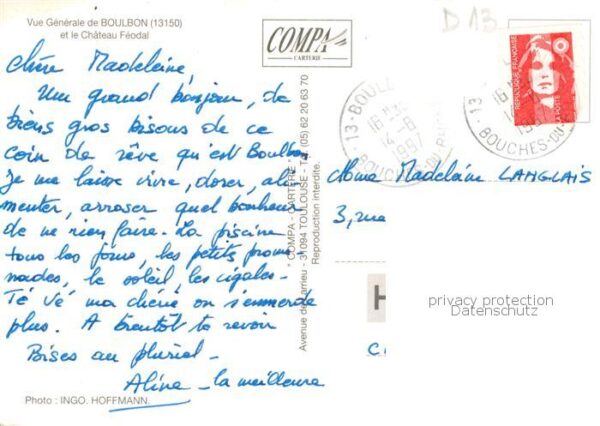 Vue Générale de BOULBON (13150)
et le Château Féodal
Chère Madeleine,
Un grand bonjour, de
biens gros bisous de ce
coin de rêve qu'est Boulbon
je me laisse vivre, dorer, ali
menter, arroser quel bonheur
de ne rien faire. La piscine
tous les jours, les petits prome
nades, le soleil les cigales -
Té Vé ma chérie on s'emmerde
plus. A bientôt te revoir
Bises au pluriel -
Aline - la meilleure
Photo : INGO. HOFFMANN.
COMPA
CARTERIE
" COMPA - CARTERIE "
31094 TOULOUSE - Tél. (05) 62 20 63 70
Reproduction interdite.
D 13
13 - BOULBON
16 H
14 - 8
1997
BOUCHES-DU-RHÔNE
13
16 H
BOUCHES-DU
REPUBLIQUE FRANÇAISE
LA POSTE
Mme Madeleine LANGLAIS
3, rue
H
C
privacy protection
Datenschutz